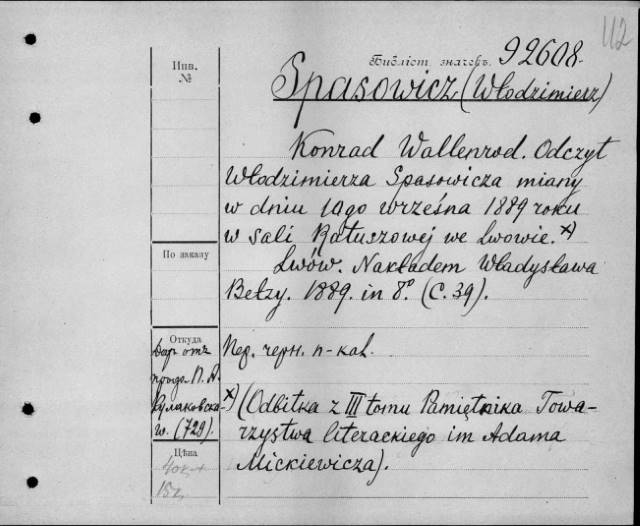 112
Библіот. значекъ. 92608.
Инв.
№
Spasowicz (Włodzimierz)
Konrad Wallenrod. Odczyt
Włodzimierza Spasowicza miany
w dniu 10go września 1889 roku
w sali Ratuszowej we Lwowie. x)
По заказу
Lwów. Nakładem Władysława
Bełzy. 1889. in 8º. (С. 39).
Откуда
Даръ отъ
проф. П. А.
Кулаковска-
го. (729).
Пер. черн. п-кал.
x) (Odbitka z III tomu Pamiętnika Towa-
rzystwa literackiego im Adama
Mickiewicza).
Цѣна
40к.+
15к.